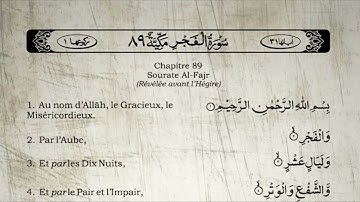 اٰیاتها ٣١ سُوْرَةُ الْفَجْرِ مَكِّيَّةٌ ٨٩ ركوعها ١
Chapitre 89
Sourate Al-Fajr
(Révélée avant l'Hégire)
1. Au nom d'Allāh, le Gracieux, le Miséricordieux.
بِسْمِ اللّٰهِ الرَّحْمٰنِ الرَّحِيْمِ
2. Par l'Aube,
وَالْفَجْرِ
3. Et par les Dix Nuits,
وَلَيَالٍ عَشْرٍ
4. Et par le Pair et l'Impair,
وَّالشَّفْعِ وَالْوَتْرِ